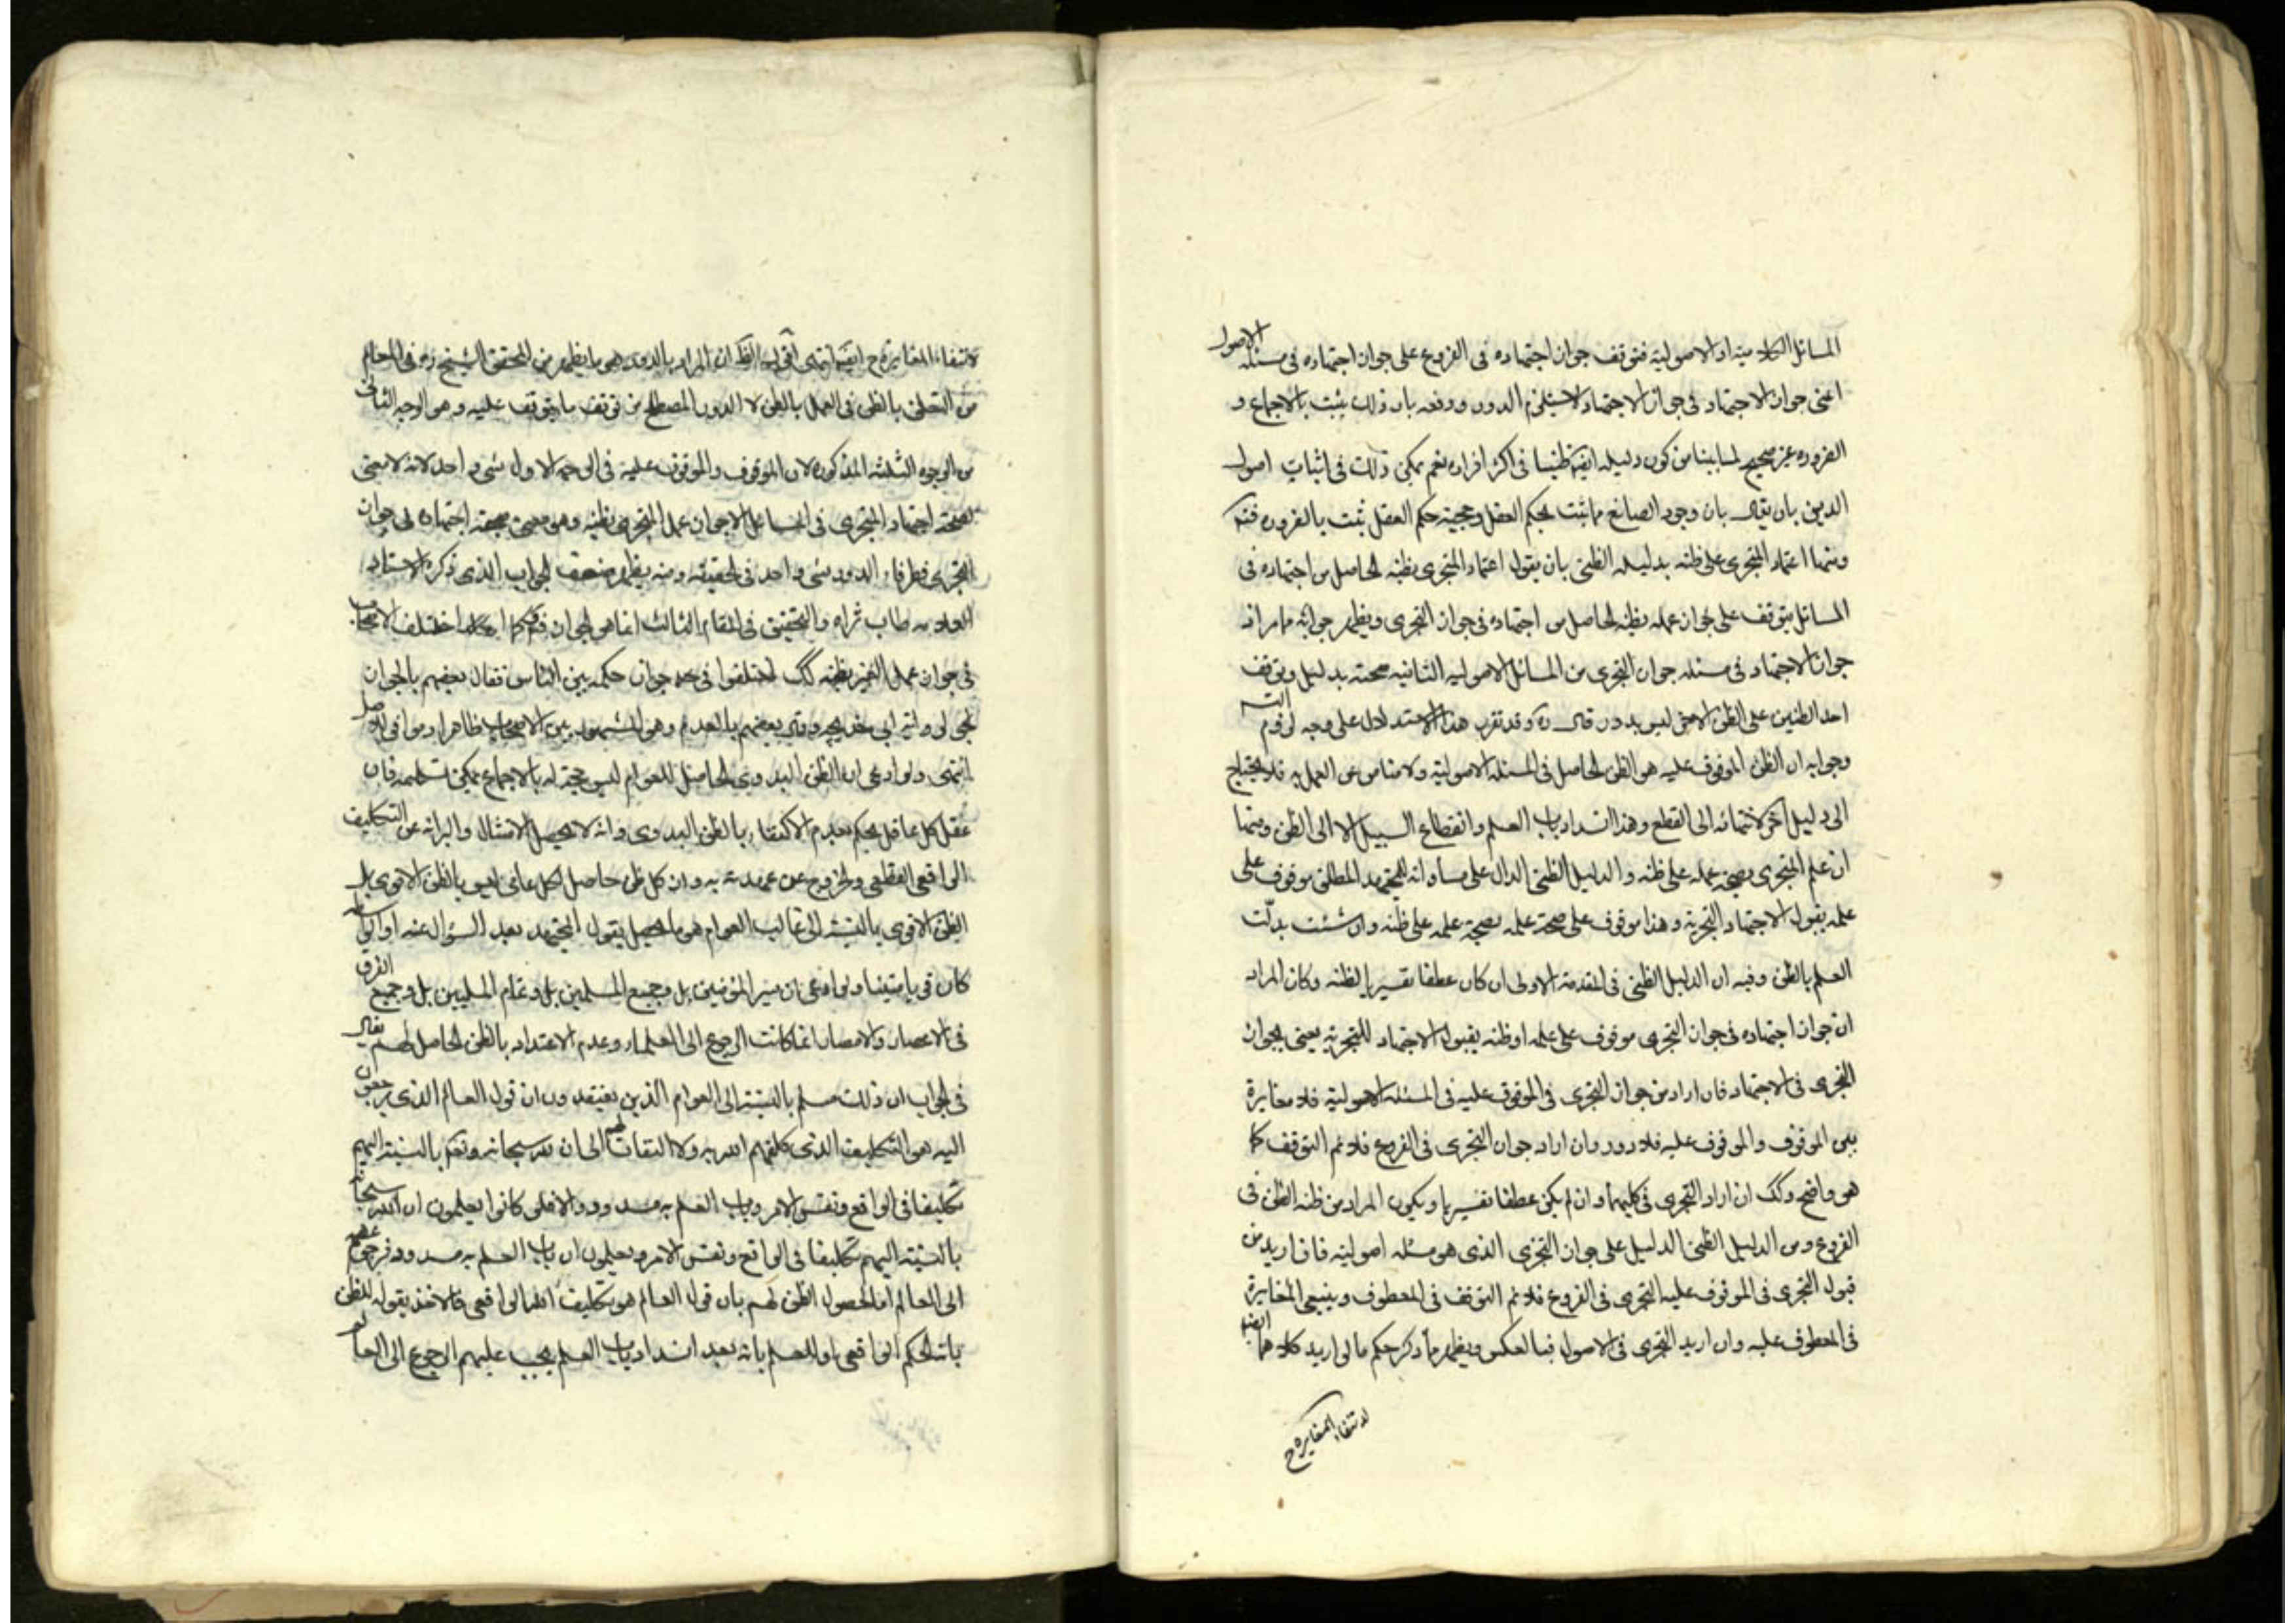 المسائل الكلامية او الاصولية فتوقف جواز اجتهاده فى الفروع على جواز اجتهاده فى مسئلة الاصول
اعنى جواز الاجتهاد فى جواز الاجتهاد لاستلزم الدور ودفعه بان ذلك يثبت بالاجماع و
الضروره غير صحيح لما بينا من كون دليله ايضا ظنيا فى اكثر افراده نعم يمكن ذلك فى اثبات اصول
الدين بان يقال بان وجود الصانع مما يثبت بحكم العقل وحجية حكم العقل يثبت بالضروره
ومنها اعتماد المتجزى على ظنه بدليله الظنى بان يقول اعتماد المتجزى بظنه الحاصل من اجتهاده فى
المسائل يتوقف على جواز عمله بظنه الحاصل من اجتهاده فى جواز التجزى ويظهر جوابه مما مر اذ
جواز الاجتهاد فى مسئله جواز التجزى من المسائل الاصوليه الثانيه صحته بدليل وتوقف
احد الظنين على الظن الاخر ليس بدور قال ره وقد تقرر هذا الاستدلال على وجه لزوم
وجوابه ان الظن الموقوف عليه هو الظن الحاصل فى المسئله الاصولية ولا مناص عن العمل به فلا يحتاج
الى دليل اخر لانتهائه الى القطع وهذا انسداد باب العلم وانقطاع السبيل الا الى الظن ومنها
ان علم المتجزى بصحة عمله على ظنه والدليل الظنى الدال على مساواته للمجتهد المطلق موقوف على
علمه بقبول الاجتهاد التجزية وهذا موقوف على صحة علمه بصحة علمه على ظنه وان شئت بدلت
العلم بالظن وفيه ان الدليل الظنى فى المقدمة الاولى ان كان عطفا تفسيريا لظنه وكان المراد
ان جواز اجتهاده فى جواز التجزى موقوف على علمه او ظنه بقبول الاجتهاد للتجزية يعنى بجواز
التجزى فى الاجتهاد فان اراد من جواز التجزى فى الموقوف عليه فى المسئله الاصولية فلا مغايرة
بين الموقوف والموقوف عليه فلا دور وان اراد جواز التجزى فى الفروع فلا نم التوقف كما
هو واضح وكك ان اراد التجزى فى كليهما وان لم يكن عطفا تفسيريا ويكون المراد من ظنه الظن فى
الفروع ومن الدليل الظنى الدليل على جواز التجزى الذى هو مسئله اصولية فان اريد من
قبول التجزى فى الموقوف عليه التجزى فى الفروع فلا نم التوقف فى المعطوف وينبغى المغايرة
فى المعطوف عليه وان اريد التجزى فى الاصول فبالعكس ويظهر مما ذكر حكم ما لو اريد كلاهما ايضا
لانتفاء المغايرة ح
لانتفاء المغايرة ح ايضا انتهى اقول الظ ان المراد بالدور هو ما يظهر من المحقق الشيخ ره فى المعالم
من التعلق بالظن فى العمل بالظن لا الدور المصطلح من توقف ما يتوقف عليه وهو الوجه الثانى
من الوجوه الثلثه المذكوره لان الموقوف والموقوف عليه فى الوجه الاول شى واحد لانه لا معنى
لصحة اجتهاد المتجزى فى المسائل الا جواز عمل المتجزى بظنه وهو معنى صحة اجتهاده فى جواز
التجزى فطرفاء الدور شى واحد فى الحقيقه ومنه يظهر ضعف الجواب الذى ذكره الاستاد
طاب ثراه والتحقيق فى المقام الثالث انما هو الجواز كما اختلف الاصحاب
فى جواز عمل الغير بظنه كك اختلفوا فى جواز حكمه بين الناس فقال بعضهم بالجواز
وقال بعضهم بالعدم وهو المشهور بين الاصحاب ظاهرا وموافق للاصل
انتهى ولو ادعى ان الظن البدوى الحاصل للعوام ليس حجة له بالاجماع يمكن تسليمه فان
عقل كل عاقل يحكم بعدم الاكتفاء بالظن البدوى وانه لا يحصل الامتثال والبرائه عن التكليف
الواقعى القطعى والخروج عن عهدته به وان كل ظن حاصل لكل عامى ليس بالظن الاقوى بل
الظن الاقوى بالنسبة الى غالب العوام هو ما يحصل بقول المجتهد بعد السؤال عنه
كان ولو ادعى ان سير المؤمنين بل وجميع المسلمين بل وتمام المليين بل وجميع الفرق
فى الاعصار والامصار انما كانت الرجوع الى العلماء وعدم الاعتداد بالظن الحاصل لهم يقال
فى الجواب ان ذلك مسلم بالنسبة الى العوام الذين يعتقدون ان قول العالم الذى يرجعون
اليه هو التكليف الذى كلفهم الله به ولا التفات لهم الى ان لله سبحانه وتعالى بالنسبة اليهم
تكليفا فى الواقع ونفس الامر وباب العلم به مسدود والا فلو كانوا يعلمون ان لله سبحانه
بالنسبة اليهم تكليفا فى الواقع ونفس الامر ويعلمون ان باب العلم به مسدود فرجوعهم
الى العالم اما لحصول الظن لهم بان قول العالم هو تكليف الله الواقعى فالاخذ بقوله للظن
بانه الحكم الواقعى او للعلم بانه بعد انسداد باب العلم يجب عليهم الرجوع الى العالم